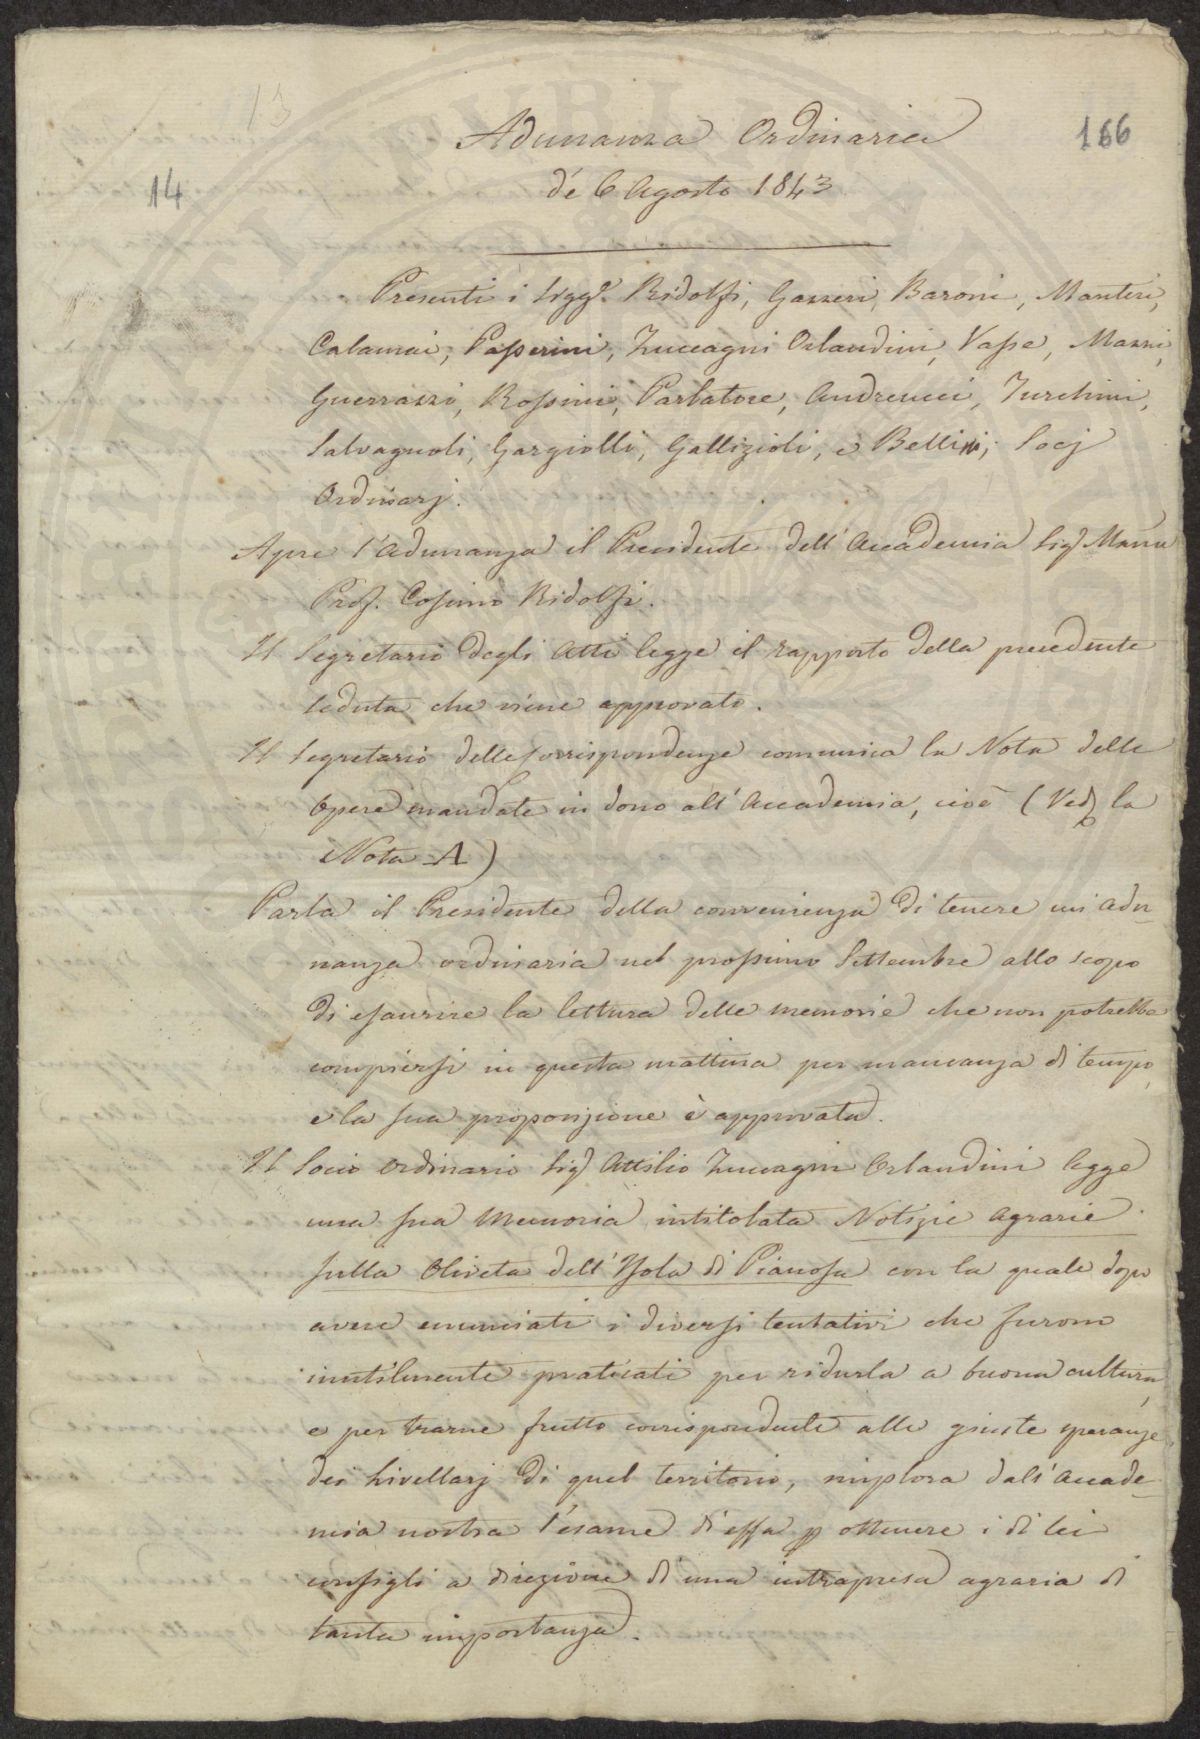 13
Adunanza Ordinaria
166
14
de' 6 Agosto 1843
Presenti i Sigg.i Ridolfi, Gazzeri, Baroni, Manteri,
Calamai, Passerini, Zuccagni Orlandini, Vasse, Mazzi,
Guerrazzi, Rossini, Parlatore, Andreucci, Turchini,
Salvagnoli, Gargiolli, Gallizioli, e Bellini, Socj
Ordinarj.
Apre l'adunanza il Presidente dell'Accademia Sig.
Prof. Cosimo Ridolfi.
Il Segretario degli Atti legge il rapporto della precedente
seduta che viene approvato.
Il Segretario delle Corrispondenze comunica la Nota delle
Opere mandate in dono all'Accademia, cioè (Ved. la
Nota A)
Parla il Presidente della convenienza di tenere un adu-
nanza ordinaria nel prossimo Settembre allo scopo
di esaurire la lettura delle memorie che non potrebbe
compiersi in questa mattina per mancanza di tempo,
e la sua proposizione è approvata.
Il Socio ordinario Sig. Attilio Zuccagni Orlandini legge
una sua Memoria intitolata Notizie agrarie
sulla Oliveta dell'Isola di Pianosa con la quale dopo
avere enunciati i diversi tentativi che furono
inutilmente praticati per ridurla a buona cultura,
e per trarne frutto corrispondente alle giuste speranze
dei Livellarj di quel territorio, implora dall'Accade-
mia nostra l'esame di essa p ottenere i di lei
consigli a direzione di una intrapresa agraria di
tanta importanza.